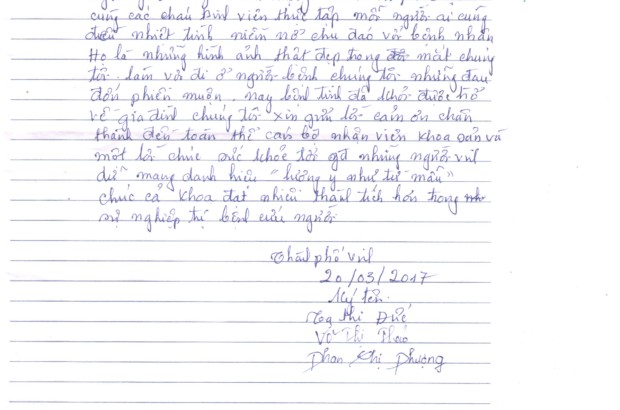 cùng các cháu sinh viên thực tập mỗi người ai cũng
đều nhiệt tình niềm nở chu đáo với bệnh nhân
Họ là những hình ảnh thật đẹp trong đôi mắt chúng
tôi. làm vơi đi ở người bệnh chúng tôi những đau
đớn phiền muộn. nay bệnh tình đã khỏi được trở
về gia đình chúng tôi xin gửi lời cảm ơn chân
thành đến toàn thể cán bộ nhân viên khoa sản và
một lời chúc sức khỏe tới gđ những người
mang danh hiệu "lương y như từ mẫu"
chúc cả khoa đạt nhiều thành tích hơn trong
sự nghiệp trị bệnh cứu người
Thành phố vinh
20/03/2017
Ký tên
thị Đức
Võ Thị Thảo
Phan Thị Phượng